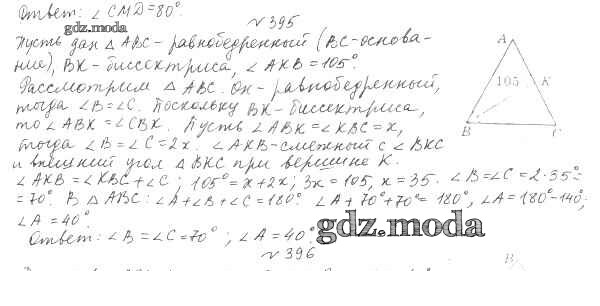 Ответ: ∠CMD=80°.
gdz.moda
№395
Пусть дан △ABC- равнобедренный (BC-основа-
ние), BK-биссектриса, ∠AKB=105°.
Рассмотрим △ABC. Он- равнобедренный,
тогда ∠B=∠C. Поскольку BK-биссектриса,
то ∠ABK=∠CBK. Пусть ∠ABK=∠KBC=x,
тогда ∠B=∠C=2x. ∠AKB-смежный с ∠BKC
и внешний угол △BKC при вершине K.
∠AKB=∠KBC+∠C; 105°=x+2x; 3x=105, x=35. ∠B=∠C=2·35°=
=70°. В △ABC: ∠A+∠B+∠C=180°. ∠A+70°+70°=180°, ∠A=180°-140°;
∠A=40°.
Ответ: ∠B=∠C=70°; ∠A=40°.
gdz.moda
№396
A
105
K
B
C
B